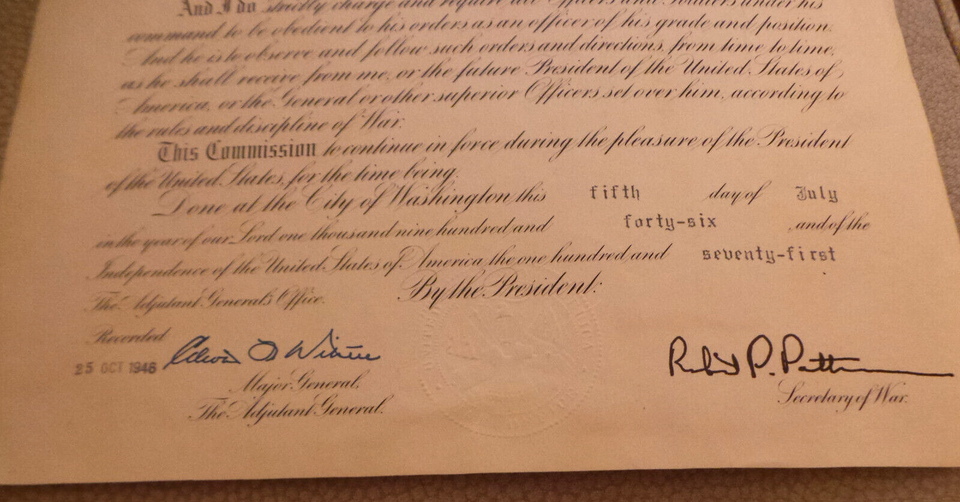 And I do strictly charge and require all Officers and Soldiers under his
command to be obedient to his orders as an officer of his grade and position.
And he is to observe and follow such orders and directions, from time to time,
as he shall receive from me, or the future President of the United States of
America, or the General or other superior Officers set over him, according to
the rules and discipline of War.
This Commission to continue in force during the pleasure of the President
of the United States, for the time being.
Done at the City of Washington, this fifth day of July
in the year of our Lord one thousand nine hundred and forty-six, and of the
Independence of the United States of America the one hundred and seventy-first.
By the President:
The Adjutant General's Office.
Recorded
25 OCT 1946
Edward F Witsell
Major General,
The Adjutant General.
Robert P. Patterson
Secretary of War.